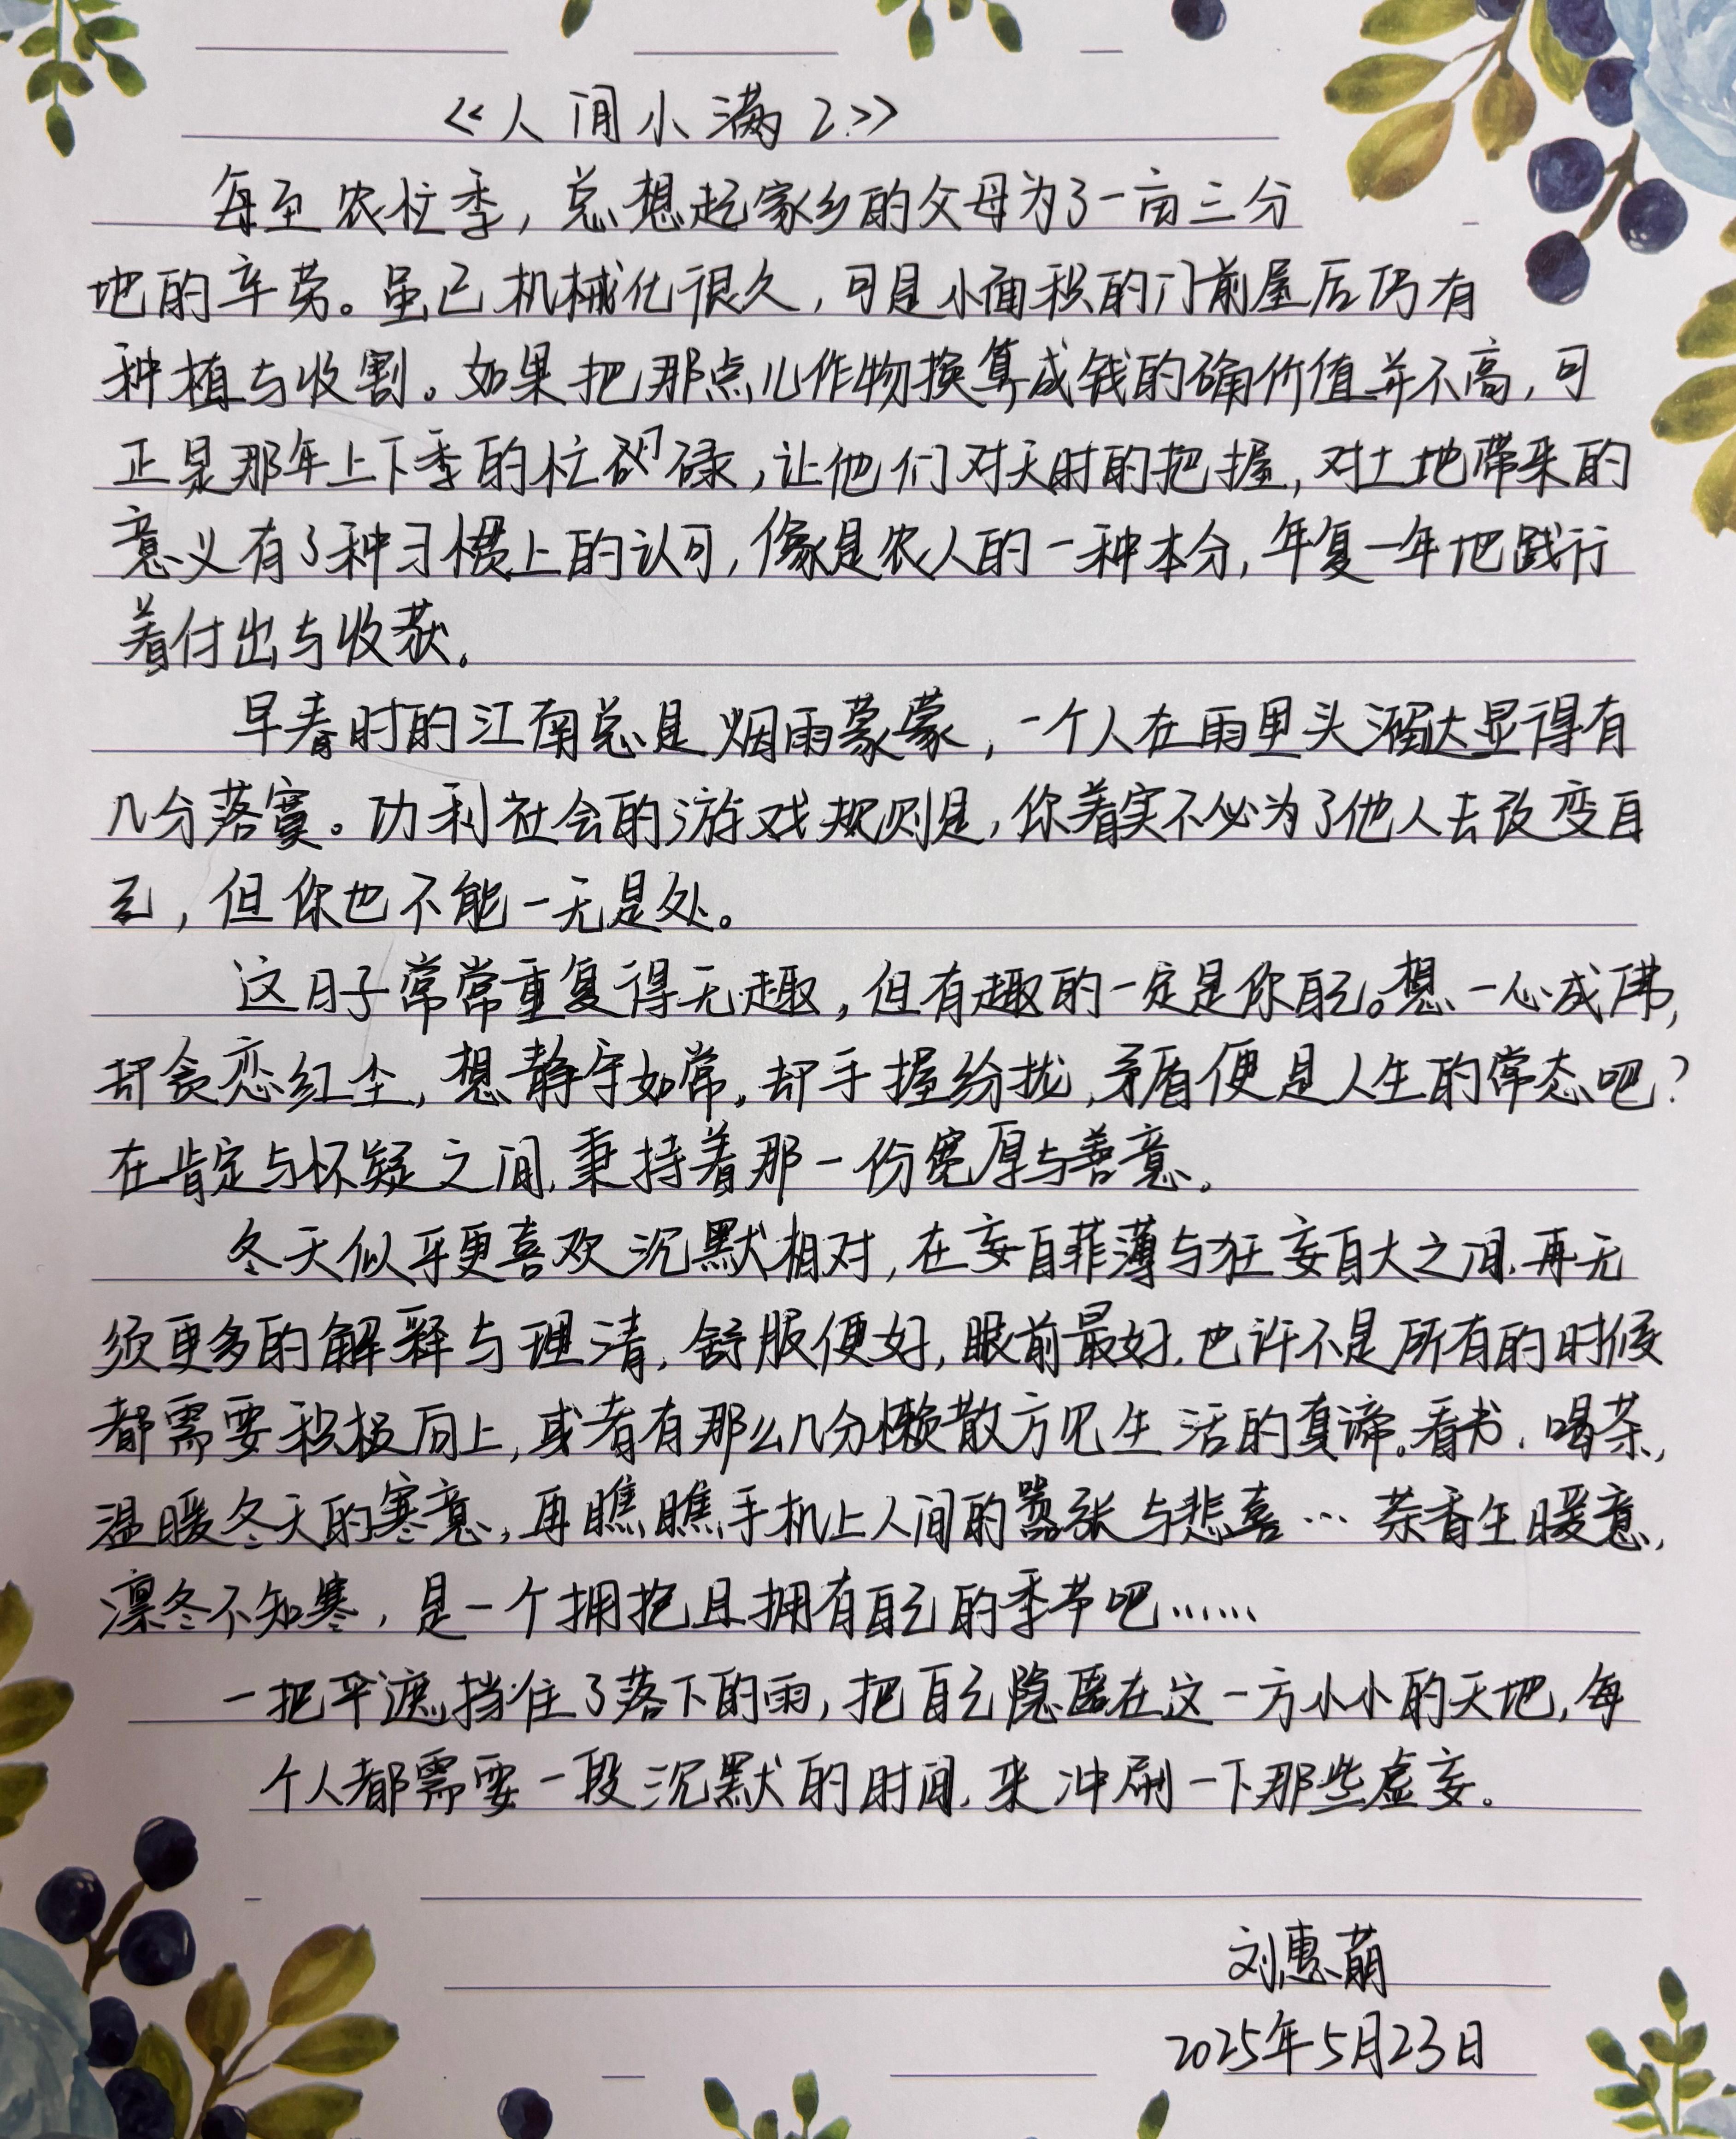 《人间小满2》
每至农忙季，总想起家乡的父母为了一亩三分
地的辛劳。虽已机械化很久，可是小面积的门前屋后仍有
种植与收割。如果把那点儿作物换算成钱的确价值并不高，可
正是那年上下季的忙忙碌碌，让他们对天时的把握，对土地带来的
意义有了种习惯上的认可，像是农人的一种本分，年复一年地践行
着付出与收获。
早春时的江南总是烟雨蒙蒙，一个人在雨里头溜达显得有
几分落寞。功利社会的游戏规则是，你着实不必为了他人去改变自
己，但你也不能一无是处。
这日子常常重复得无趣，但有趣的一定是你自己。想一心成佛，
却贪恋红尘，想静守如常，却手握纷扰，矛盾便是人生的常态吧？
在肯定与怀疑之间，秉持着那一份宽厚与善意。
冬天似乎更喜欢沉默相对，在妄自菲薄与狂妄自大之间，再无
须更多的解释与理清，舒服便好，眼前最好，也许不是所有的时候
都需要积极向上，或者有那么几分懒散方见生活的真谛。看书、喝茶，
温暖冬天的寒意，再瞧瞧手机上人间的嚣张与悲喜…茶香生暖意，
凛冬不知寒，是一个拥抱且拥有自己的季节吧……
一把伞遮挡住了落下的雨，把自己隐匿在这一方小小的天地，每
个人都需要一段沉默的时间，来冲刷一下那些虚妄。
刘惠萌
2025年5月23日